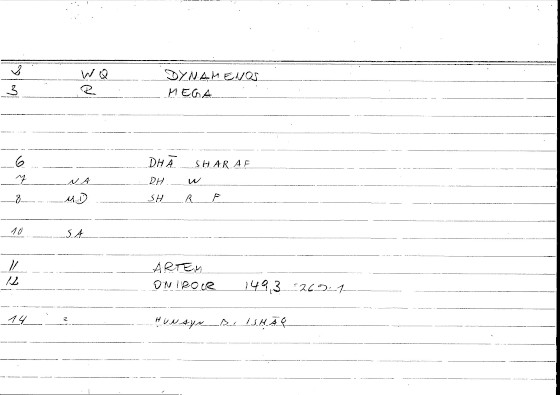 WQ DYNAMENOS
3 R MEGA
6 DHĀ SHARAF
7 NA DH W
8 MD SH R F
10 SA
11 ARTEM
12 ONIROCR 149,3
14 = HUNAYN B. ISHĀQ